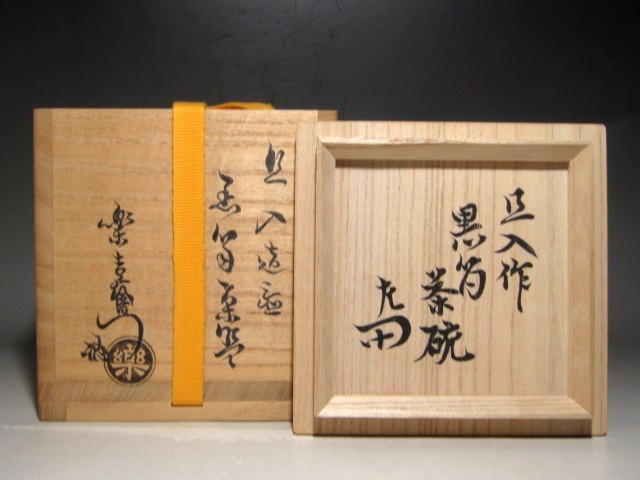 旦入造
黒筒茶碗
樂吉左衛門
樂
旦入作
黒筒
茶碗
左